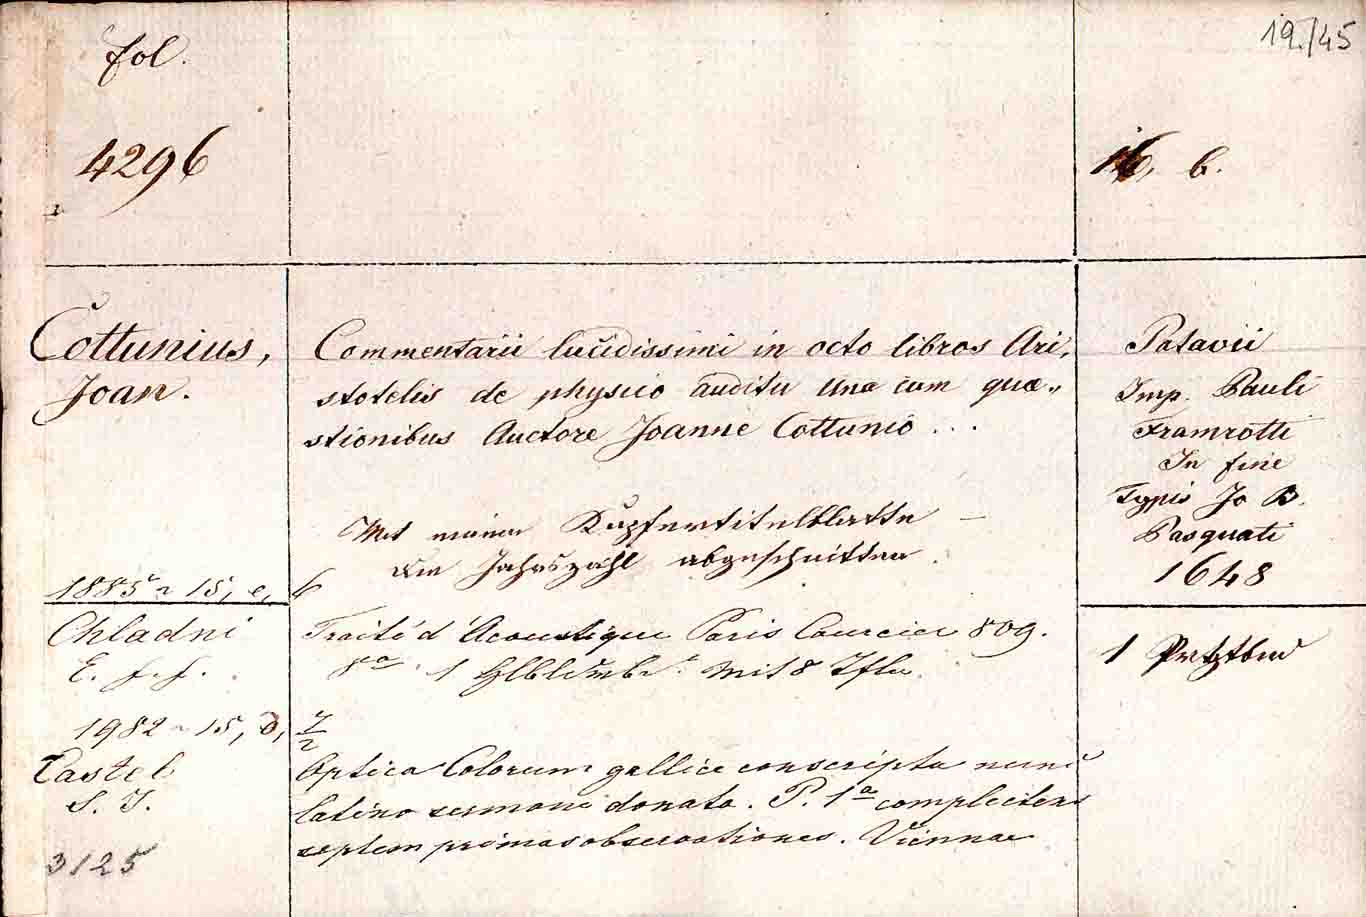 fol.
19./45
4296
16, b.
Cottunius,
Joan.
Commentarii lucidissimi in octo libros Ari,
stotelis de physico auditu una cum quæ„
stionibus Auctore Joanne Cottunio ...
Mit einem Kupfertitelblatte –
die Jahrszahl abgeschnitten.
Patavii
Imp. Pauli
Framrotti
In fine
Typis Jo B.
Pasquati
1648
1885 ~ 15, e, 6
Chladni
E. f. f.
Traité d'Acoustique Paris Courcier 809.
8º. 1 Hlbldrnb. mit 8 Tfln.
1 Prgtbnd
1982 ~ 15, d, 7/2
Castel
S. J.
Optica Colorum gallice conscripta nunc
latino sermoni donata. P. 1ª complectens
septem primas observationes. Viennae
3125